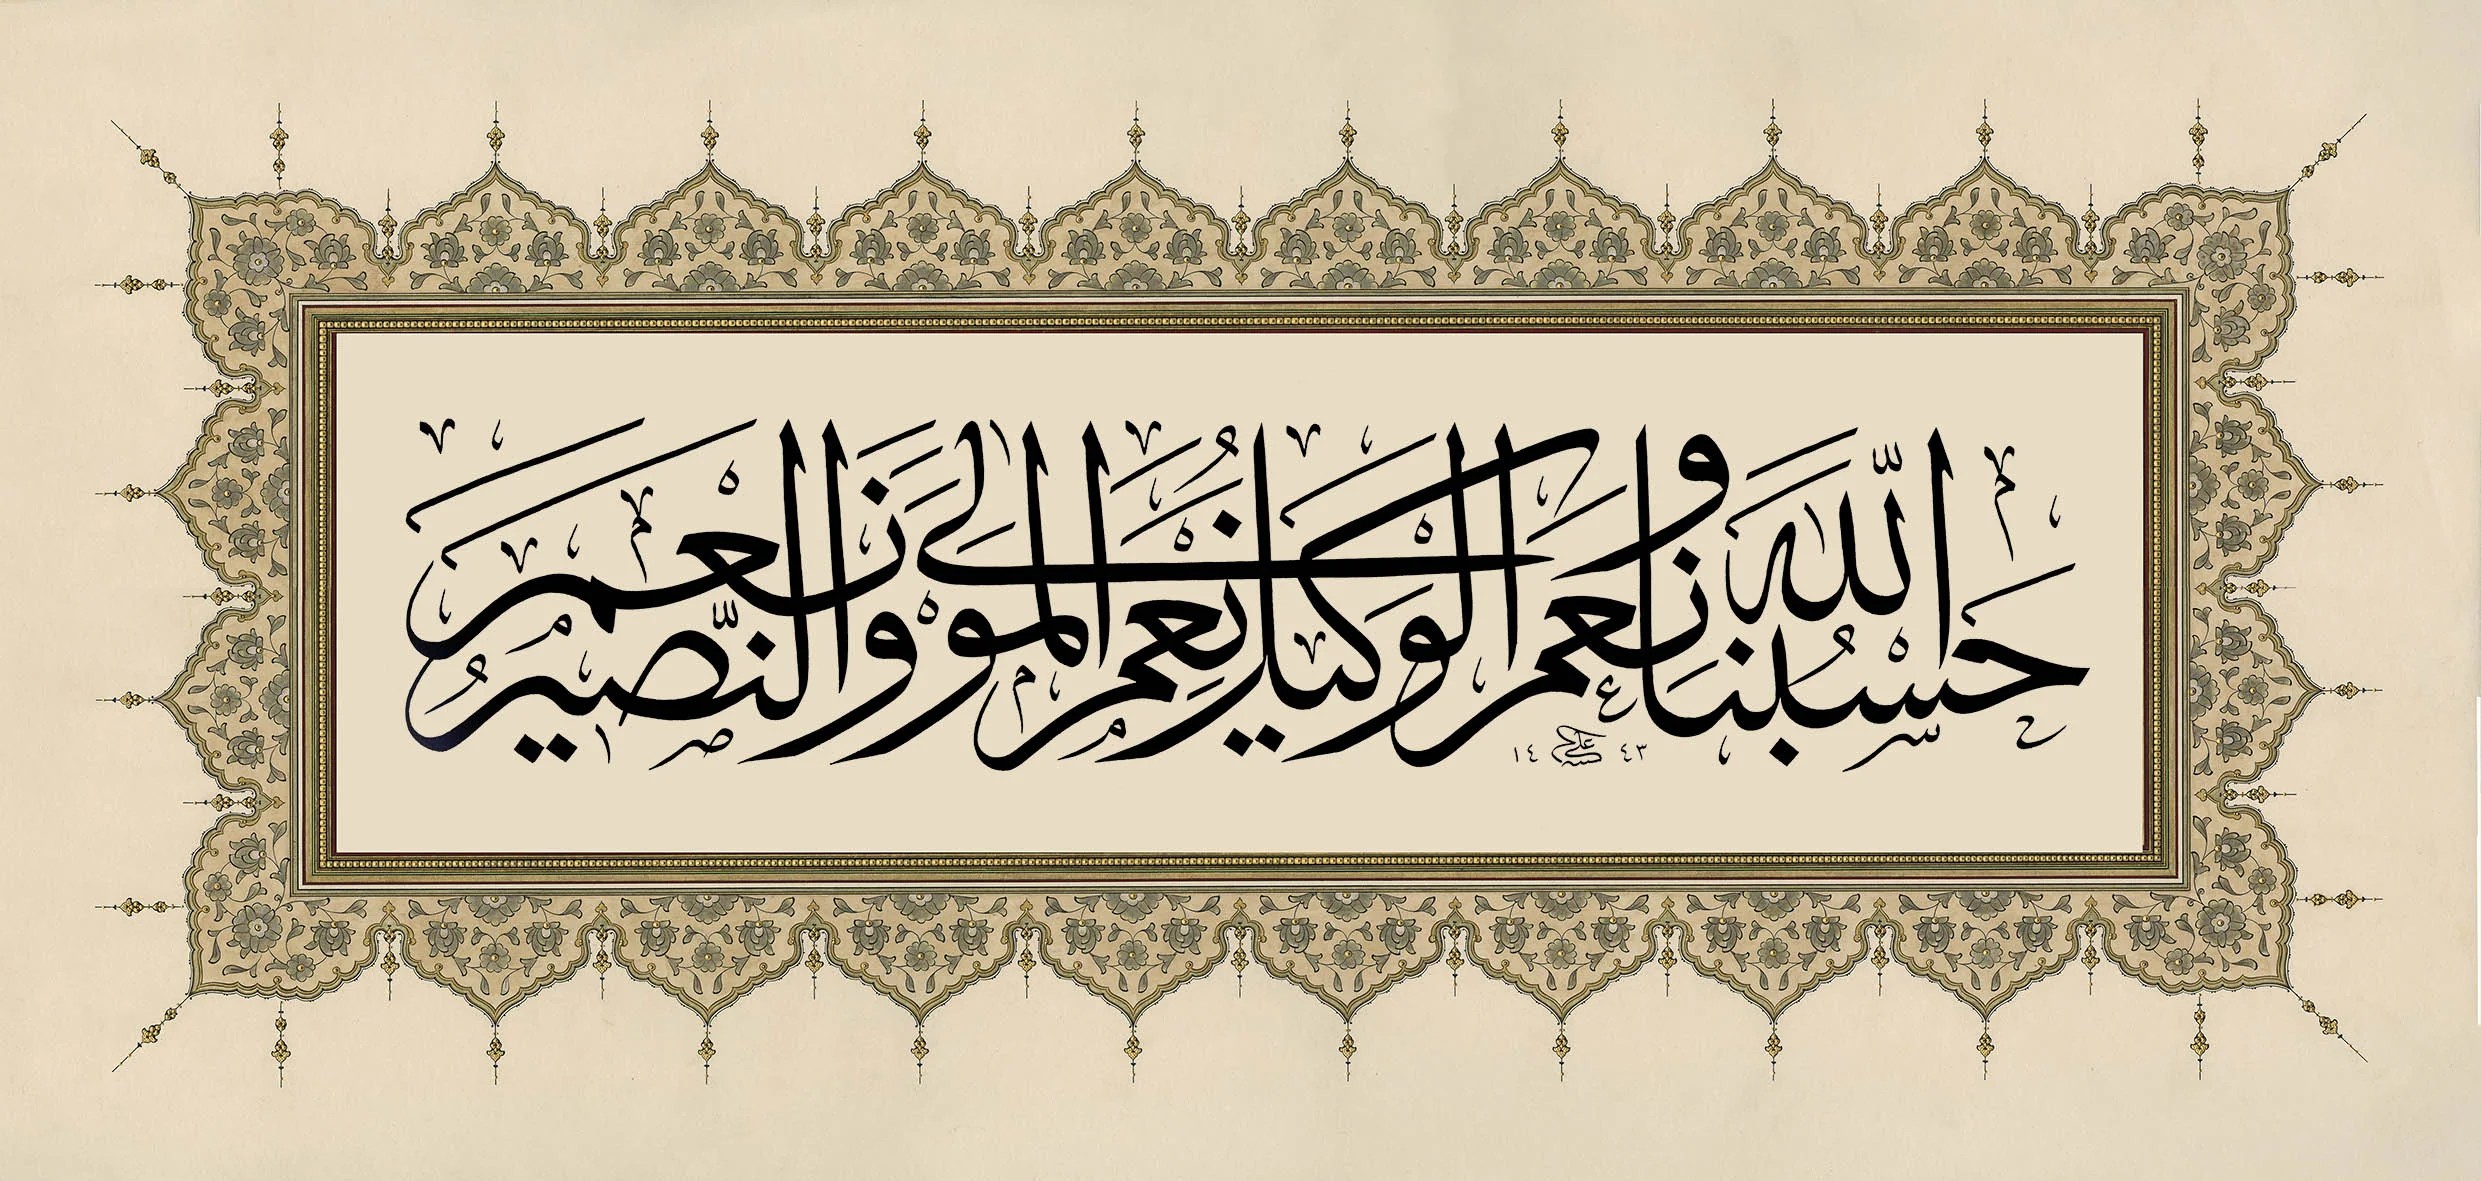 حَسْبُنَا اللَّهُ وَنِعْمَ الْوَكِيلُ نِعْمَ الْمَوْلَى وَنِعْمَ النَّصِيرُ
١٤٤٣